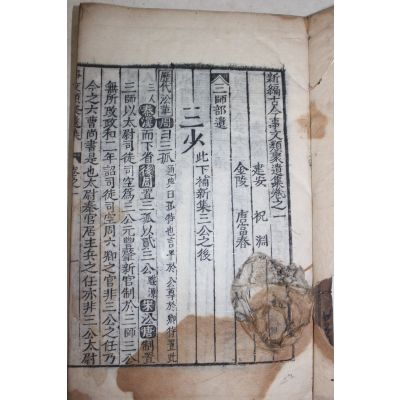 新編古今事文類聚遺集卷之一
建安 祝 淵
金陵 唐富春
三師部遺
三少 此下補新集三公之後
歷代沿革 周曰三孤 通典曰孤特也言卑於公尊於卿特置此
三人 秦漢而下省後周置三孤以貳三公 宋沿唐制置
三師以太尉司徒司空爲三公元豐新官制於三師三公
無所改政和二年詔司徒司空周六卿之官非三公之任乃
今之六曹尚書是也太尉秦官居主兵之任亦非三公太尉